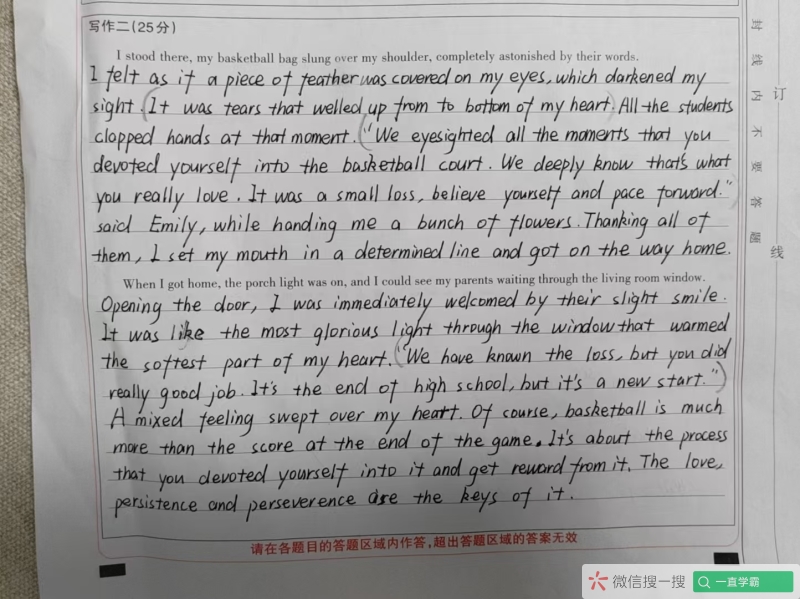 写作二(25分)
I stood there, my basketball bag slung over my shoulder, completely astonished by their words.
I felt as if a piece of feather was covered on my eyes, which darkened my
sight. (It was tears that welled up from to bottom of my heart.) All the students
clapped hands at that moment. ("We eyesighted all the moments that you
devoted yourself into the basketball court. We deeply know that's what
you really love. It was a small loss, believe yourself and pace forward.")
said Emily, while handing me a bunch of flowers. Thanking all of
them, I set my mouth in a determined line and got on the way home.
When I got home, the porch light was on, and I could see my parents waiting through the living room window.
Opening the door, I was immediately welcomed by their slight smile.
It was like the most glorious light through the window that warmed
the softest part of my heart. ("We have known the loss, but you did
really good job. It's the end of high school, but it's a new start.")
A mixed feeling swept over my heart. Of course, basketball is much
more than the score at the end of the game. It's about the process
that you devoted yourself into it and get reward from it. The love,
persistence and perseverence are the keys of it.
请在各题目的答题区域内作答,超出答题区域的答案无效
封线内不要答题
订线
微信搜一搜
一直学霸